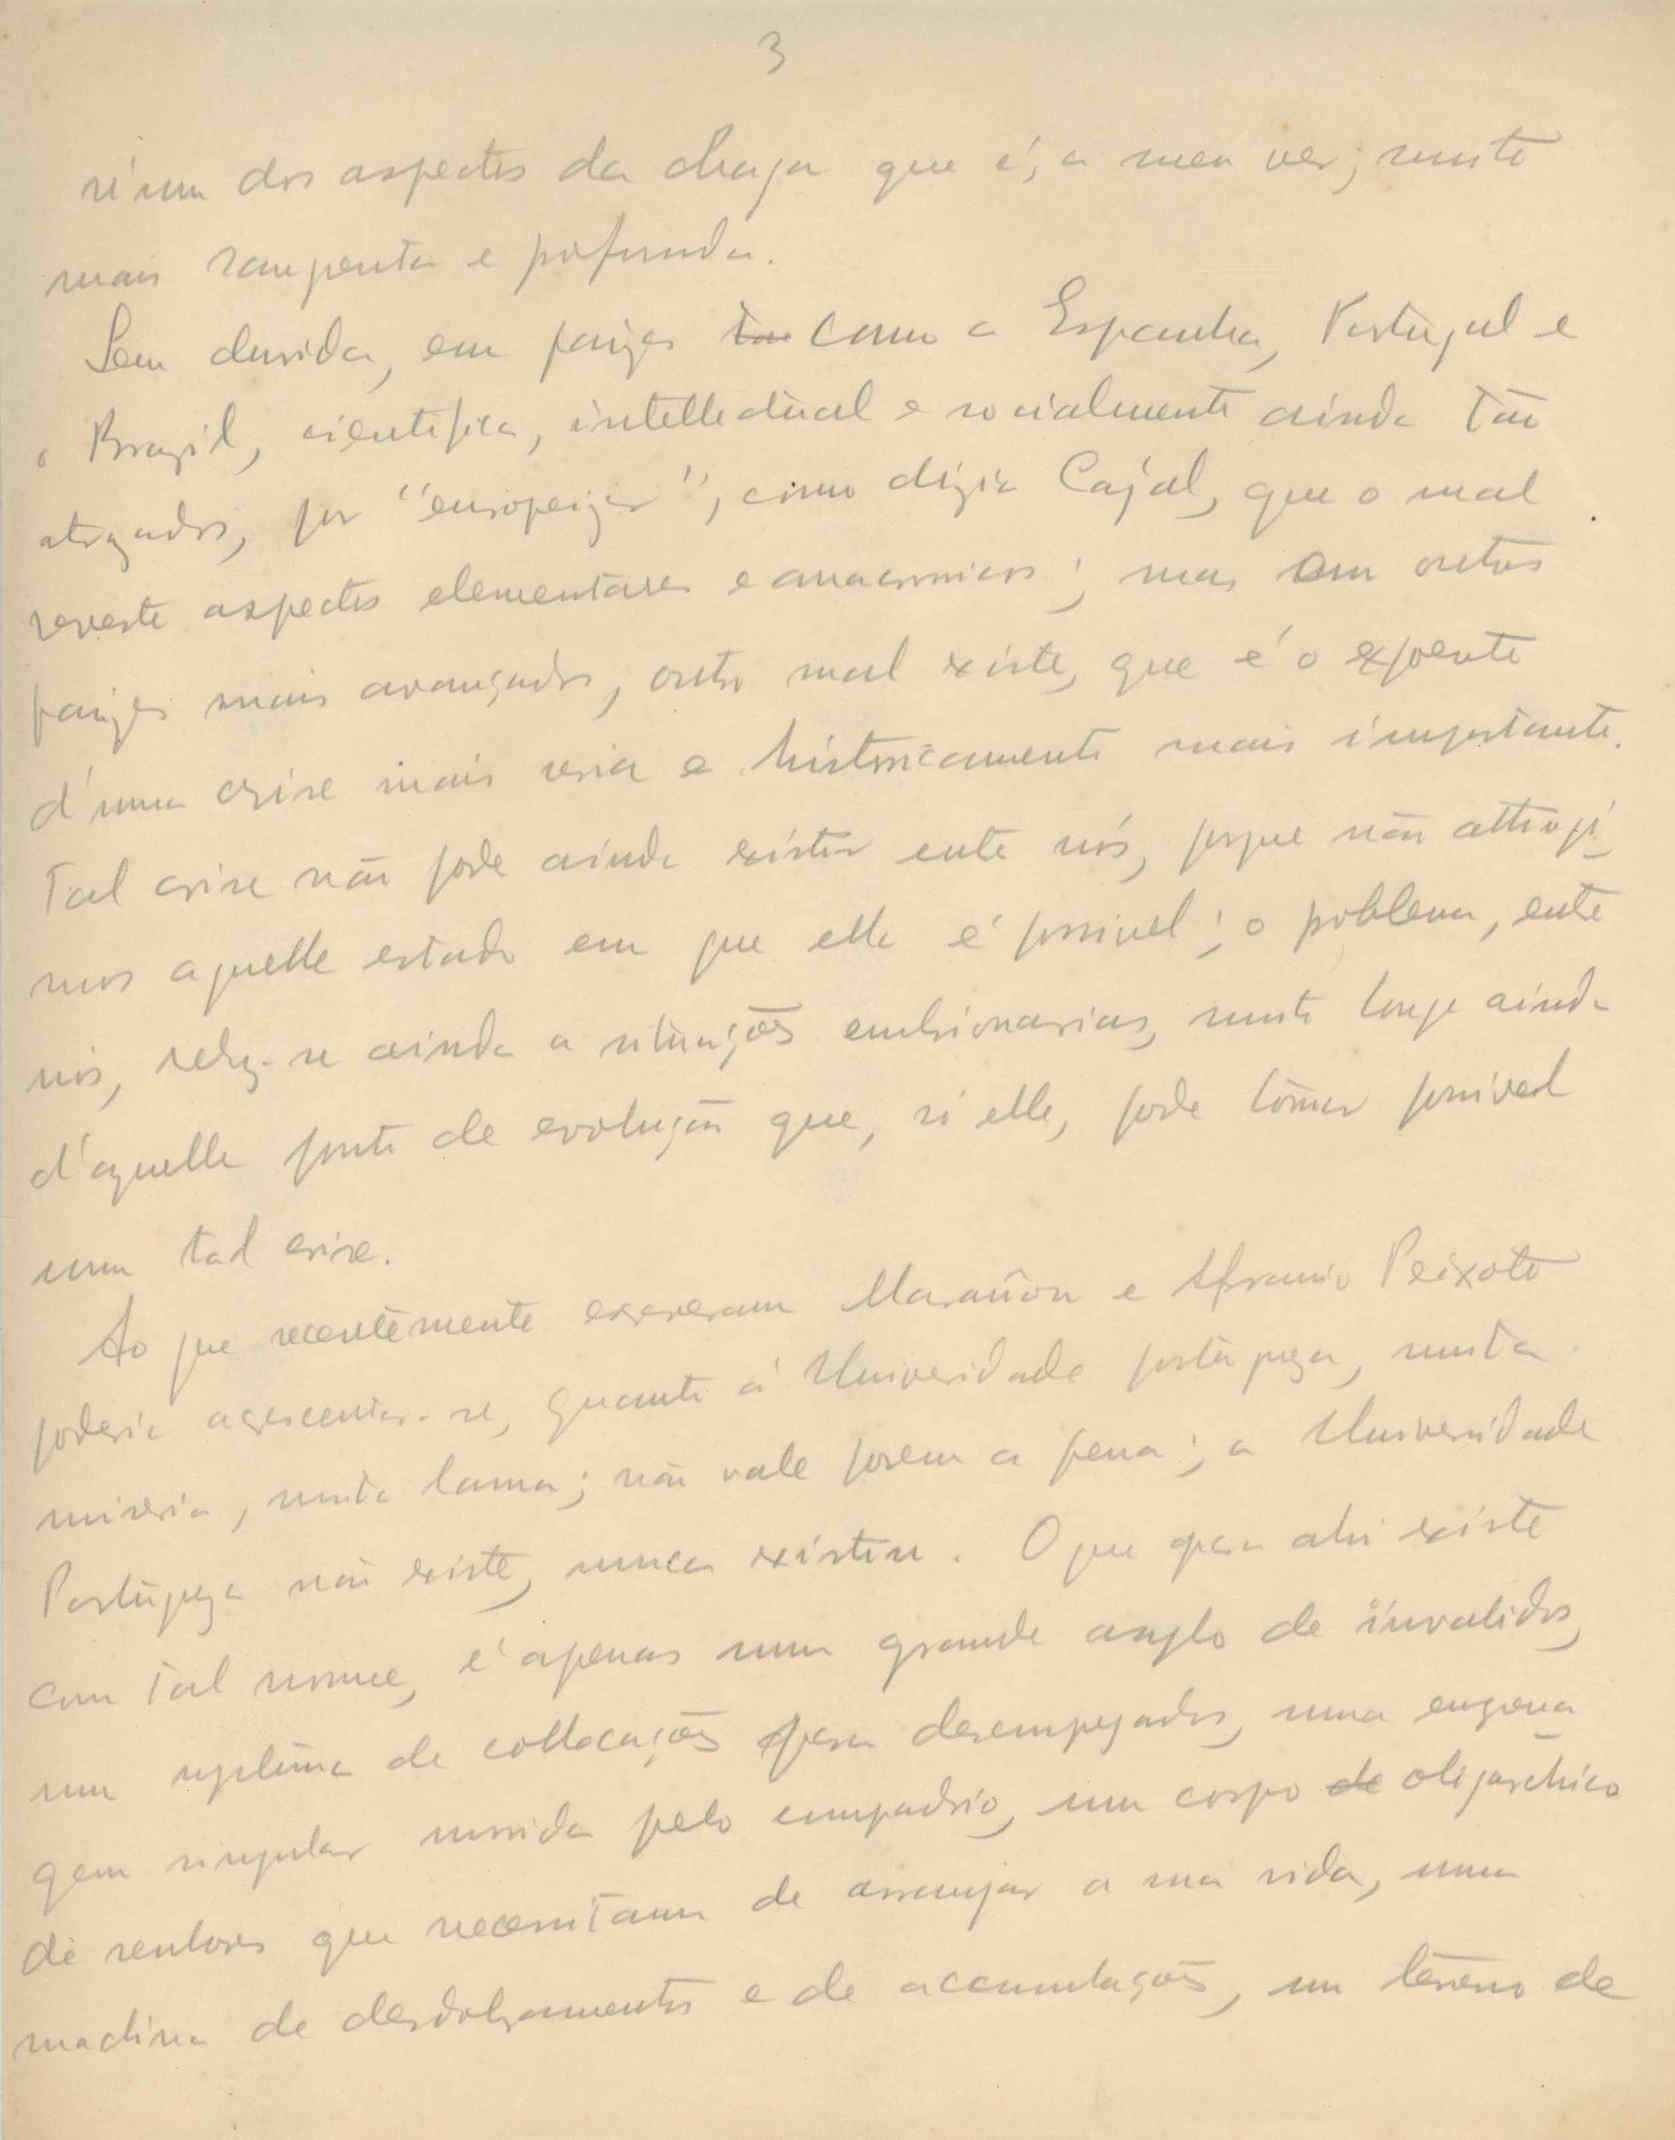 3
si um dos aspectos da chaga que é, a meu ver, muito
mais rangenta e profunda.
Sem duvida, em paizes tae como a Espanha, Portugal e
o Brazil, scientifica, intellectual e socialmente ainda tão
atrazados, por "europeizar", como dizia Cajal, que o mal
reveste aspectos elementares e anacronicos; mas em outros
paizes mais avançados, outro mal existe, que é o expoente
d'uma crise mais seria e historicamente mais importante.
Tal crise não pode ainda existir entre nós, porque não attingi
mos aquelle estado em que ella é possivel; o problema, entre
nós, reduz-se ainda a situações embrionarias, muito longe ainda
d'aquelle ponto de evolução que, si elle, pode tornar possivel
uma tal crise.
Ao que recentemente escreveram Marañon e Afranio Peixoto
poderia acrescentar-se, quanto á Universidade portugueza, muita
miseria, muita lama; não vale porem a pena; a Universidade
Portugueza não existe, nunca existiu. O que para ahi existe
com tal nome, é apenas um grande asylo de invalidos,
um systema de collocações para desempregados, uma engrena
gem singular movida pelo compadrio, um corpo de oligarchico
de senhores que necessitam de arranjar a sua vida, uma
machina de desdobramentos e de accumulações, um terreno de